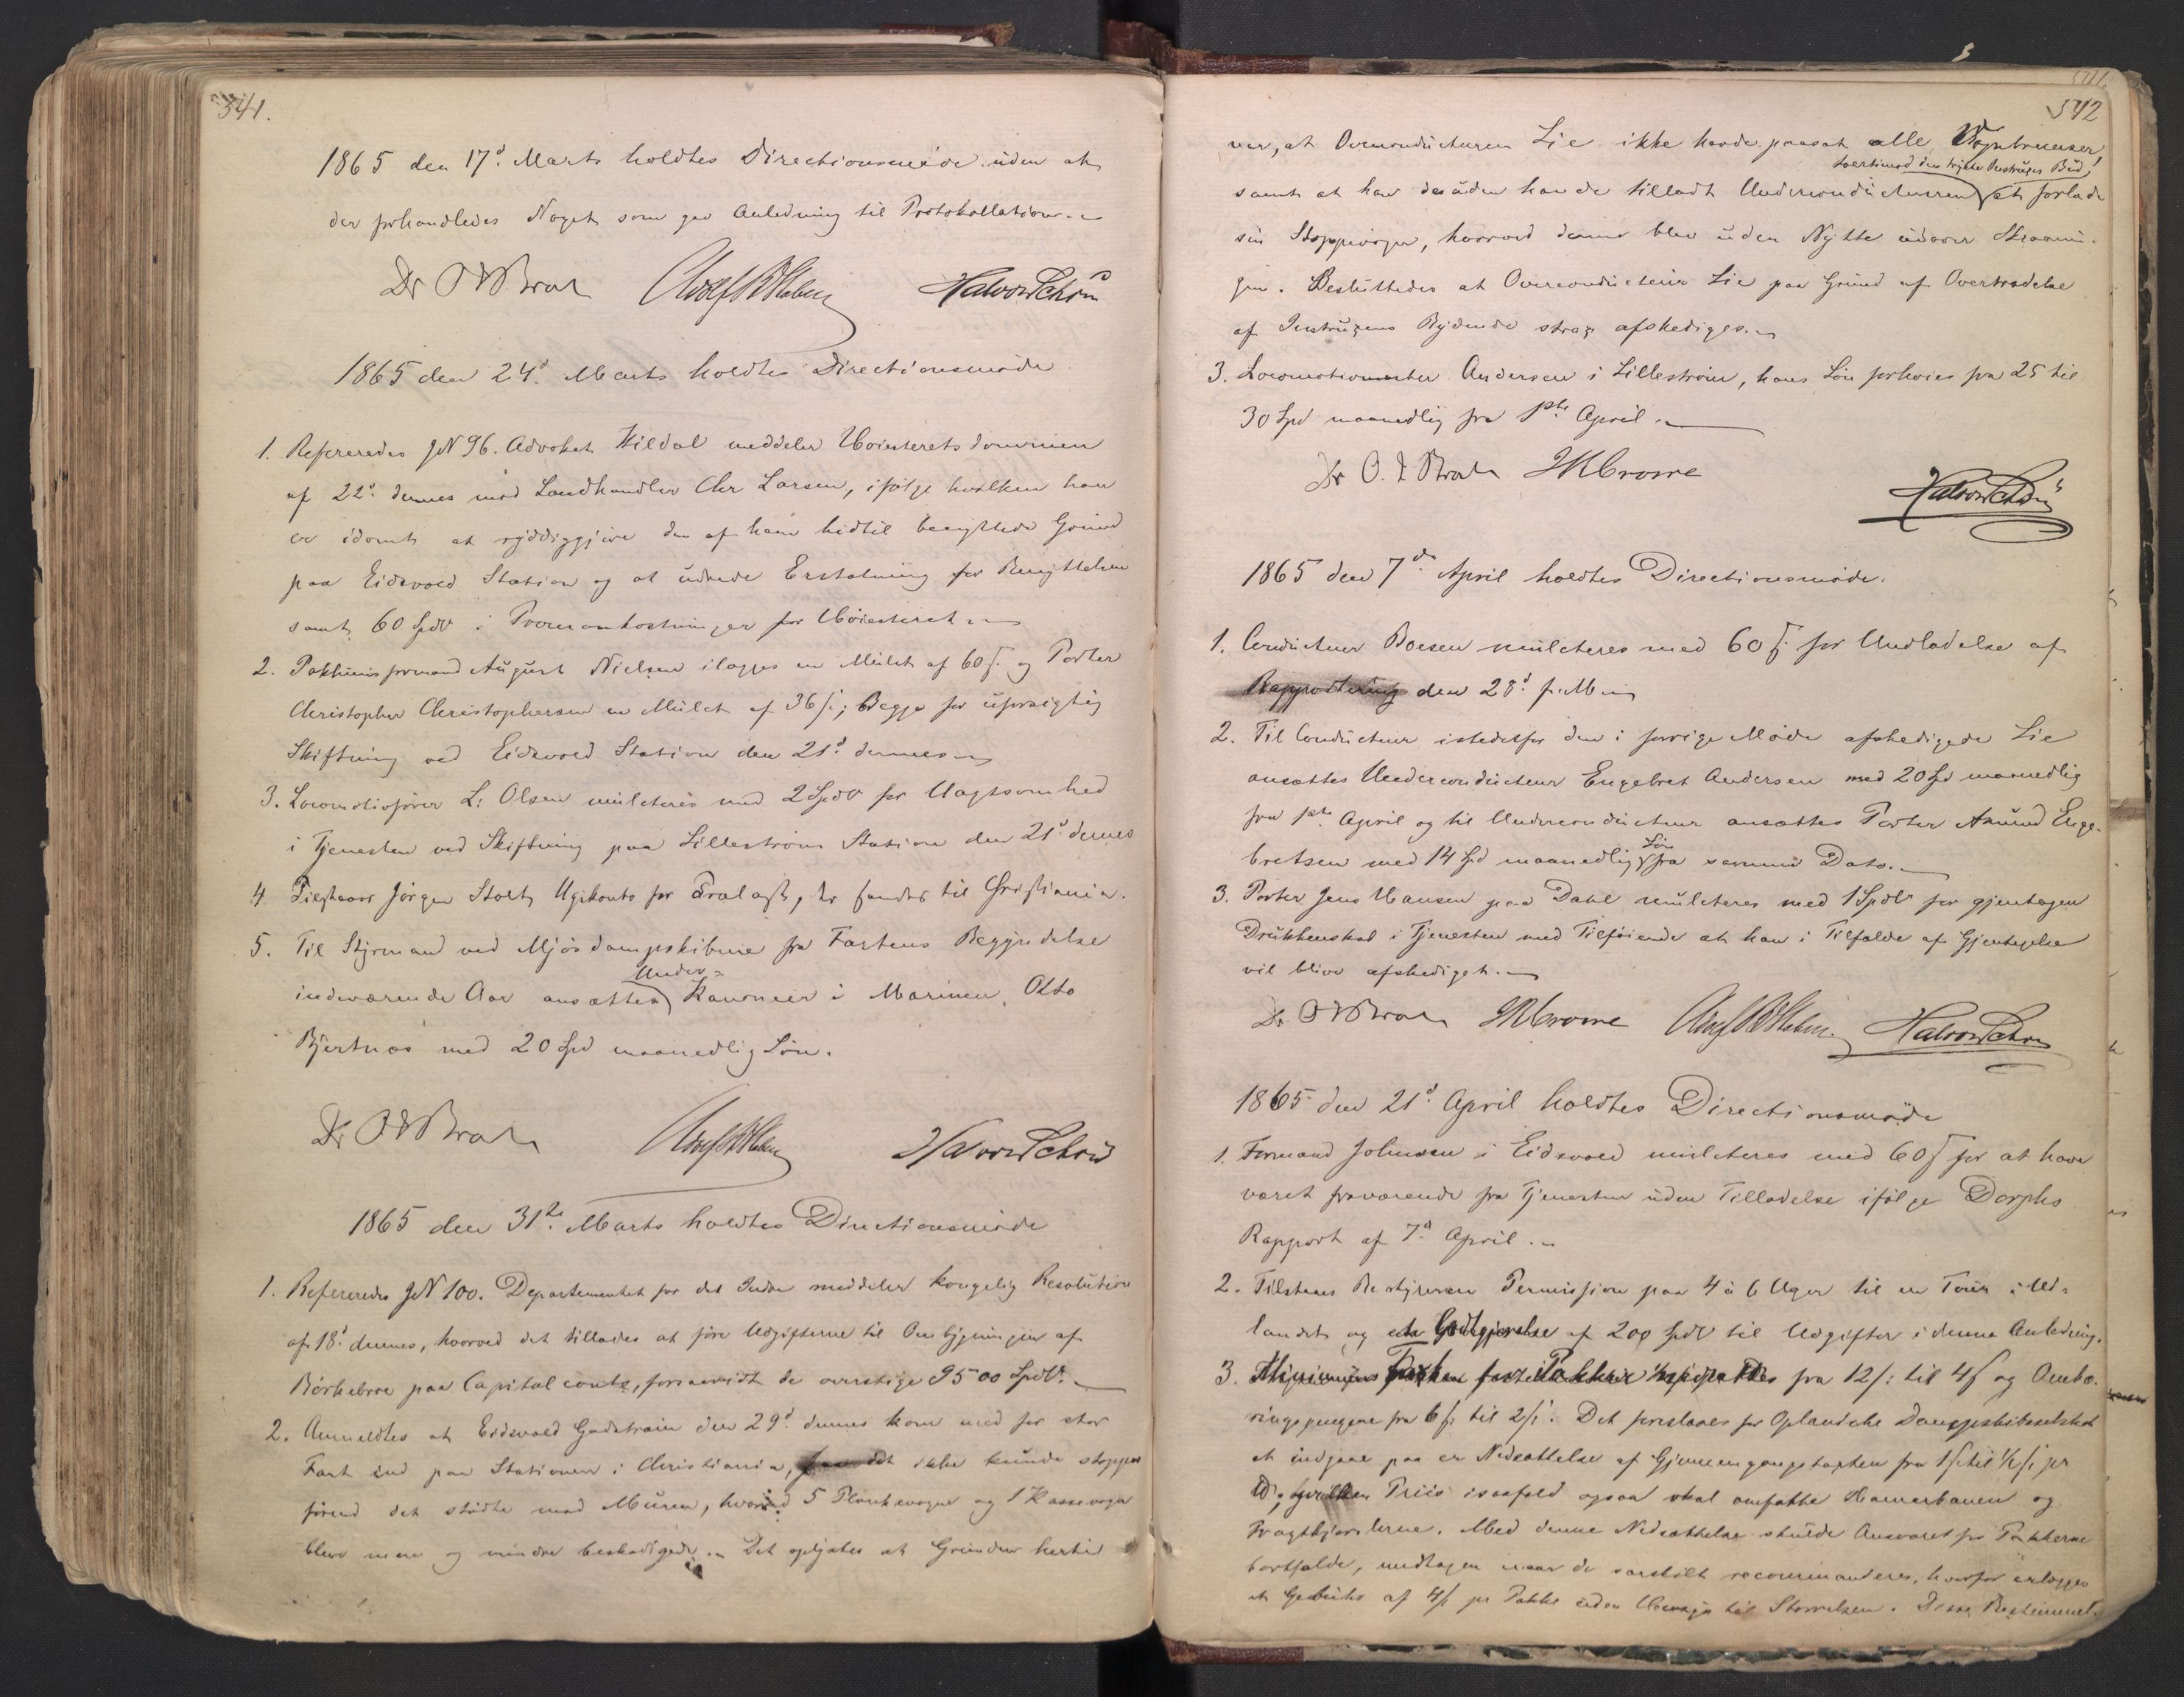 341.
1865 den 17d. Marts holdtes Directionsmøde uden at
der forhandledes Noget som gav Anledning til Protokollation.
Dr O J Broch Halvor Schou
1865 den 24d. Marts holdtes Directionsmøde
1. Refereredes JN 96. Advokat Hildal meddeler Høiesteretsdommen
af 22d. dennes mod Landhandler Chr Larsen, ifølge hvilken han
er idømt at ryddiggjøre den af ham hidtil benyttede Grund
paa Eidsvold Station og at udrede Erstatning for Benyttelsen
samt 60 Spdlr i Procesomkostninger for Høiesteret
2. Pakhusformand August Nielsen ilægges en Mulct af 60 ß. og Porter
Christopher Christophersen en Mulct af 36 ß; Begge for uforsigtig
Skiftning ved Eidsvold Station den 21d. dennes
3. Locomotivfører L: Olsen mulcteres med 2 Spdlr for Uagtsomhed
i Tjenesten ved Skiftning paa Lillestrøm Station den 21d dennes
4. Tilstaaes Jørgen Stolt Ugekonto for Trælast, der sendes til Christiania.
5. Til Styrmand ved Mjøsdampskibene fra Fartens Begyndelse
indeværende Aar ansættes Under-Kanoneer i Marinen, Otto
Bjertnæs med 20 Spd maanedlig Løn.
Dr O J Broch Halvor Schou
1865 den 31te. Marts holdtes Directionsmøde
1. Refereredes JN 100. Departementet for det Indre meddeler kongelig Resolution
af 18d. dennes, hvorved det tillades at føre Udgifterne til Ombygningen af
Børkebroe paa Capitalconto, forsaavidt de overstige 9500 Spdlr.
2. Anmeldtes at Eidsvold Godstrain den 29d. dennes kom med for stor
Fart ind paa Stationen i Christiania, saa det ikke kunde stoppes
førend det stødte mod Muren, hvorved 5 Plankevogne og 1 Kassevogn
bleve mere og mindre beskadigede. Det oplystes at Grunden hertil
542
var, at Overconducteuren Lie ikke havde passet alle Vognbremser
tvertimod den trykte Instruxes Bud,
samt at han desuden havde tilladt Underconducteuren at forlade
sin Stoppevogn, hvorved denne blev uden Nytte
Besluttedes at Overconducteur Lie paa Grund af Overtrædelse
af Instruxens Bydende strax afskediges.
3. Locomotivmester Andersen i Lillestrøm, hans Løn forhøies fra 25 til
30 Spd maanedlig fra 1ste April.
Dr O. J. Broch JR Crowe
Halvor Schou
1865 den 7de April holdtes Directionsmøde.
1. Conducteur Boesen mulcteres med 60 ß. for Undladelse af
Rapportering den 28d. f: M
2. Til Conducteur istedetfor den i forrige Møde afskedigede Lie
ansættes Underconducteur Engebret Andersen med 20 Spd maanedlig
fra 1ste April og til Underconducteur ansættes Porter Amund Enge-
bretsen med 14 Spd maanedlig Løn fra samme Dato.
3. Porter Jens Hansen paa Dahl mulcteres med 1 Spdlr for gjentagen
Drukkenskab i Tjenesten med Tilføiende at han i Tilfælde af Gjentagelse
vil blive afskediget.
Dr O J Broch JR Crowe Halvor Schou
1865 den 21d. April holdtes Directionsmøde
1. Formand Johnsen i Eidsvold mulcteres med 60 ß for at have
været fraværende fra Tjenesten uden Tilladelse ifølge Dorphs
Rapport af 7d April.
2. Tilstaaes Bestyreren Permission paa 4 à 6 Uger til en Tour i Ud-
landet og en Godtgjørelse af 200 Spdlr til Udgifter i denne Anledning.
3. Minimums Taxten for Pakker nedsættes fra 12 ß: til 4 ß og Ombæ-
ringspengene fra 6 ß. til 2 ß. Det foreslaaes for Oplandske Dampskibsselskab
at indgaae paa en Nedsættelse af Gjennemgangstaxten fra 1 ß til 1/2 ß pr
hvilken Priis isaafald ogsaa skal omfatte Hamarbanen og
Fragtkjørslerne. Med denne Nedsættelse skulde Ansvaret for Pakkerne
bortfalde, undtagen naar de særskilt recommanderes, hvorfor erlægges
et Gebühr af 4 ß pr Pakke uden Hensyn til Størrelsen. Disse Bestemmel-